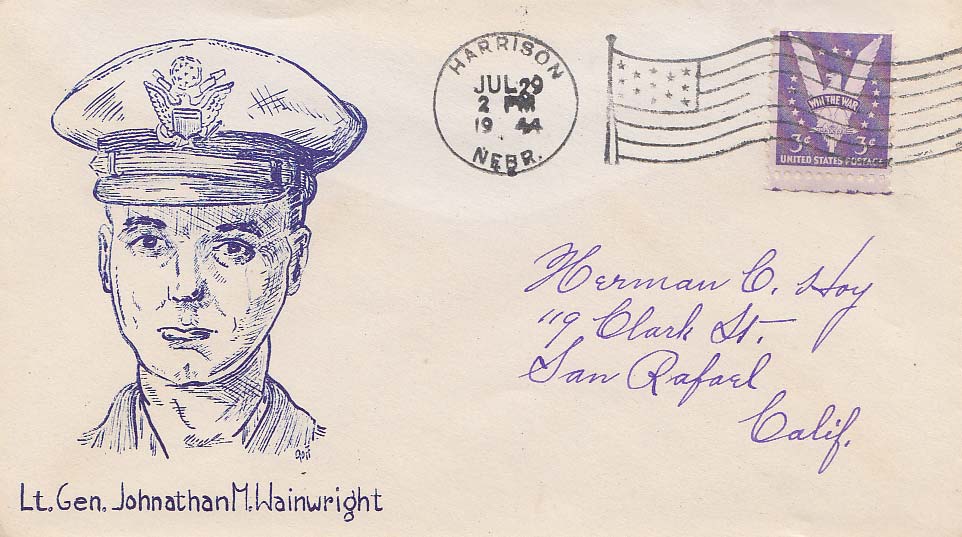 HARRISON
JUL 29
2 PM
19 44
NEBR.
WIN THE WAR
3¢ 3¢
UNITED STATES POSTAGE
Herman C. Hoy
119 Clark St.
San Rafael
Calif.
Lt. Gen. Johnathan M. Wainwright